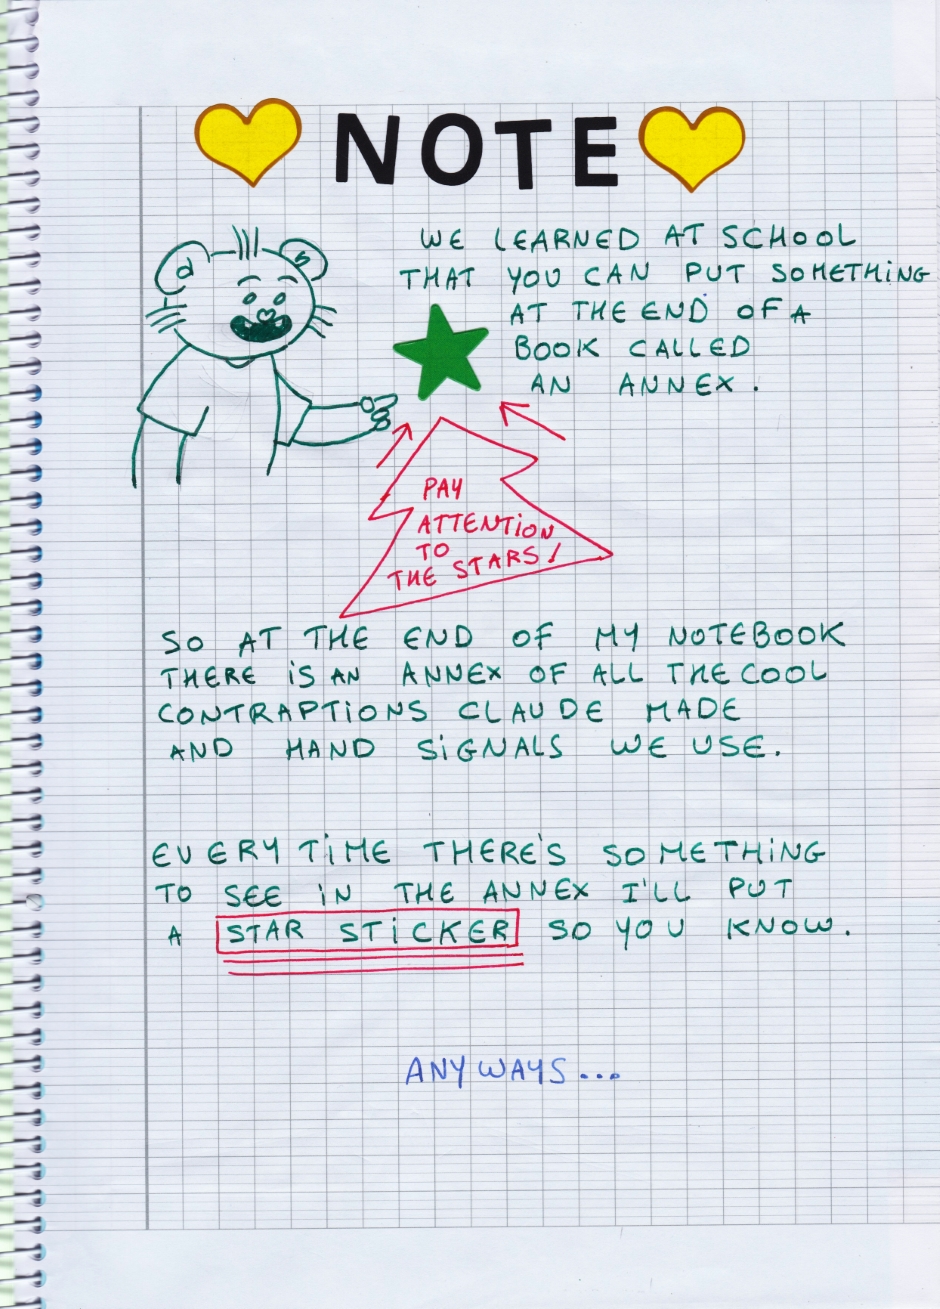 NOTE
WE LEARNED AT SCHOOL
THAT YOU CAN PUT SOMETHING
AT THE END OF A
BOOK CALLED
AN ANNEX.
PAY
ATTENTION
TO
THE STARS!
SO AT THE END OF MY NOTEBOOK
THERE IS AN ANNEX OF ALL THE COOL
CONTRAPTIONS CLAUDE MADE
AND HAND SIGNALS WE USE.
EVERY TIME THERE'S SOMETHING
TO SEE IN THE ANNEX I'LL PUT
A STAR STICKER SO YOU KNOW.
ANYWAYS...